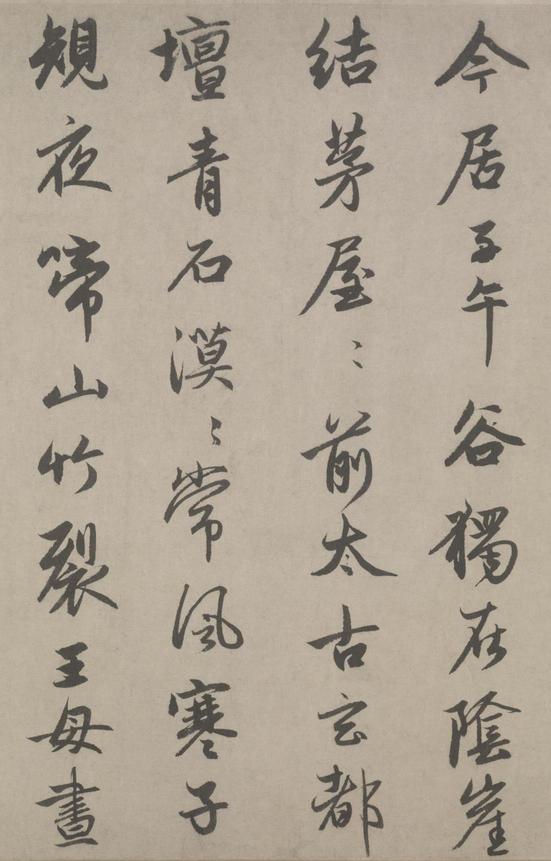 今居子午谷獨在陰崖
結茅屋〻前太古玄都
壇青石漠〻常風寒子
規夜啼山竹裂王母晝